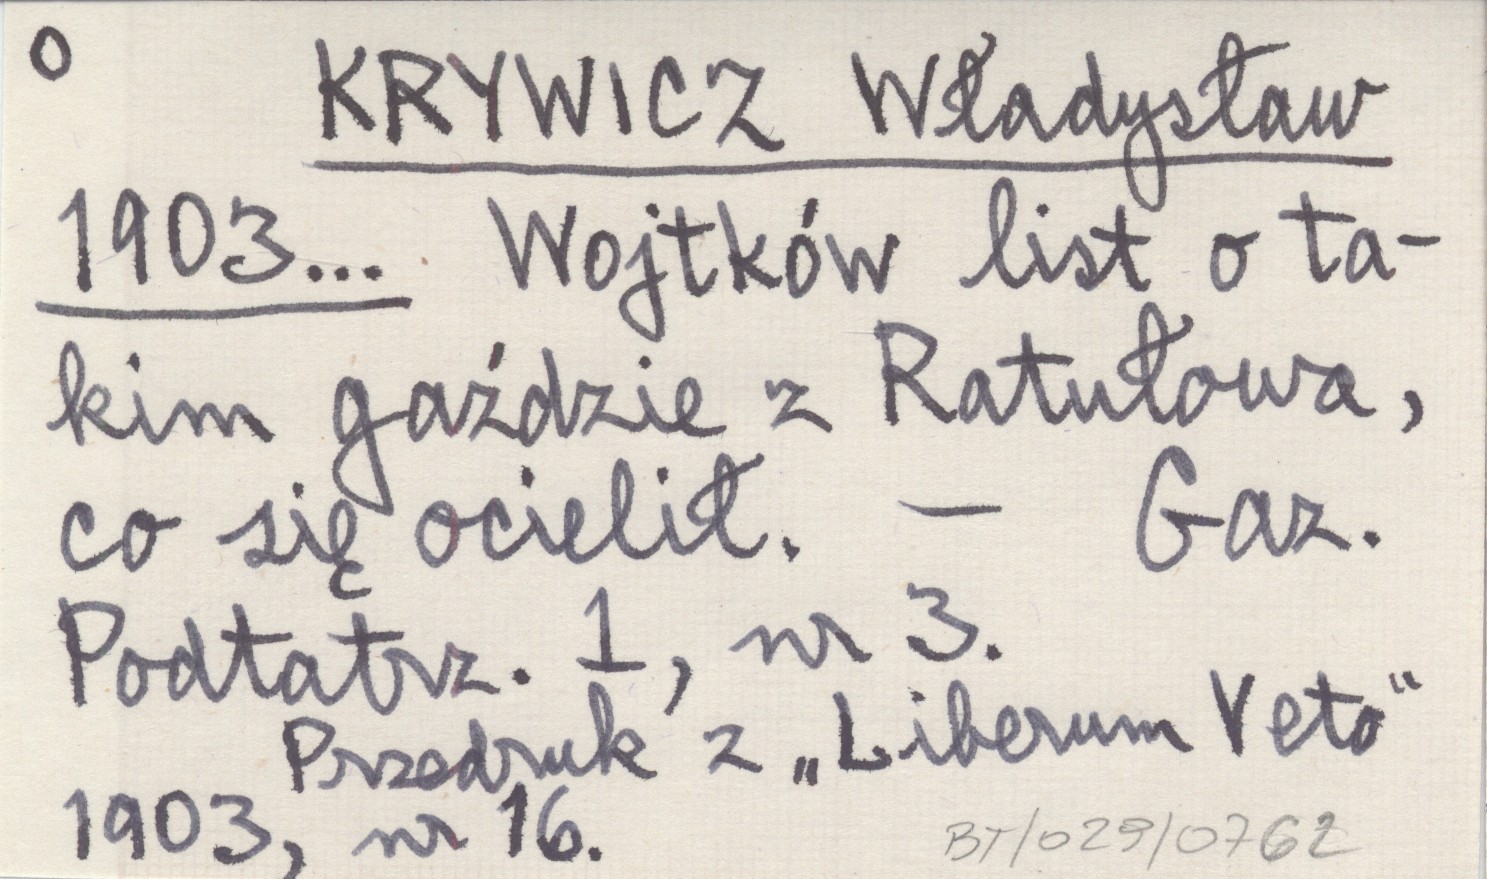 O
KRYWICZ Władysław
1903... Wojtków list o ta-
kim gaździe z Ratułowa,
co się ocielił. — Gaz.
Podtatrz. 1, nr 3.
Przedruk z „Liberum Veto"
1903, nr 16.
BT/029/0762